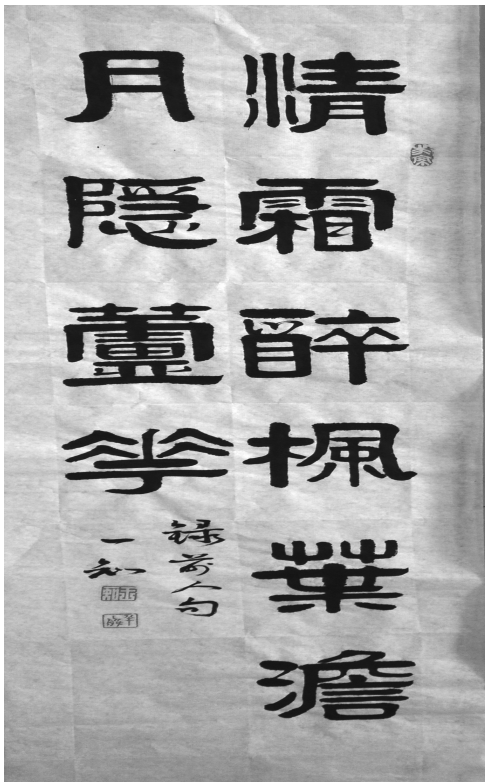 清霜醉楓葉澹
月隐蘆花
録前人句
一知